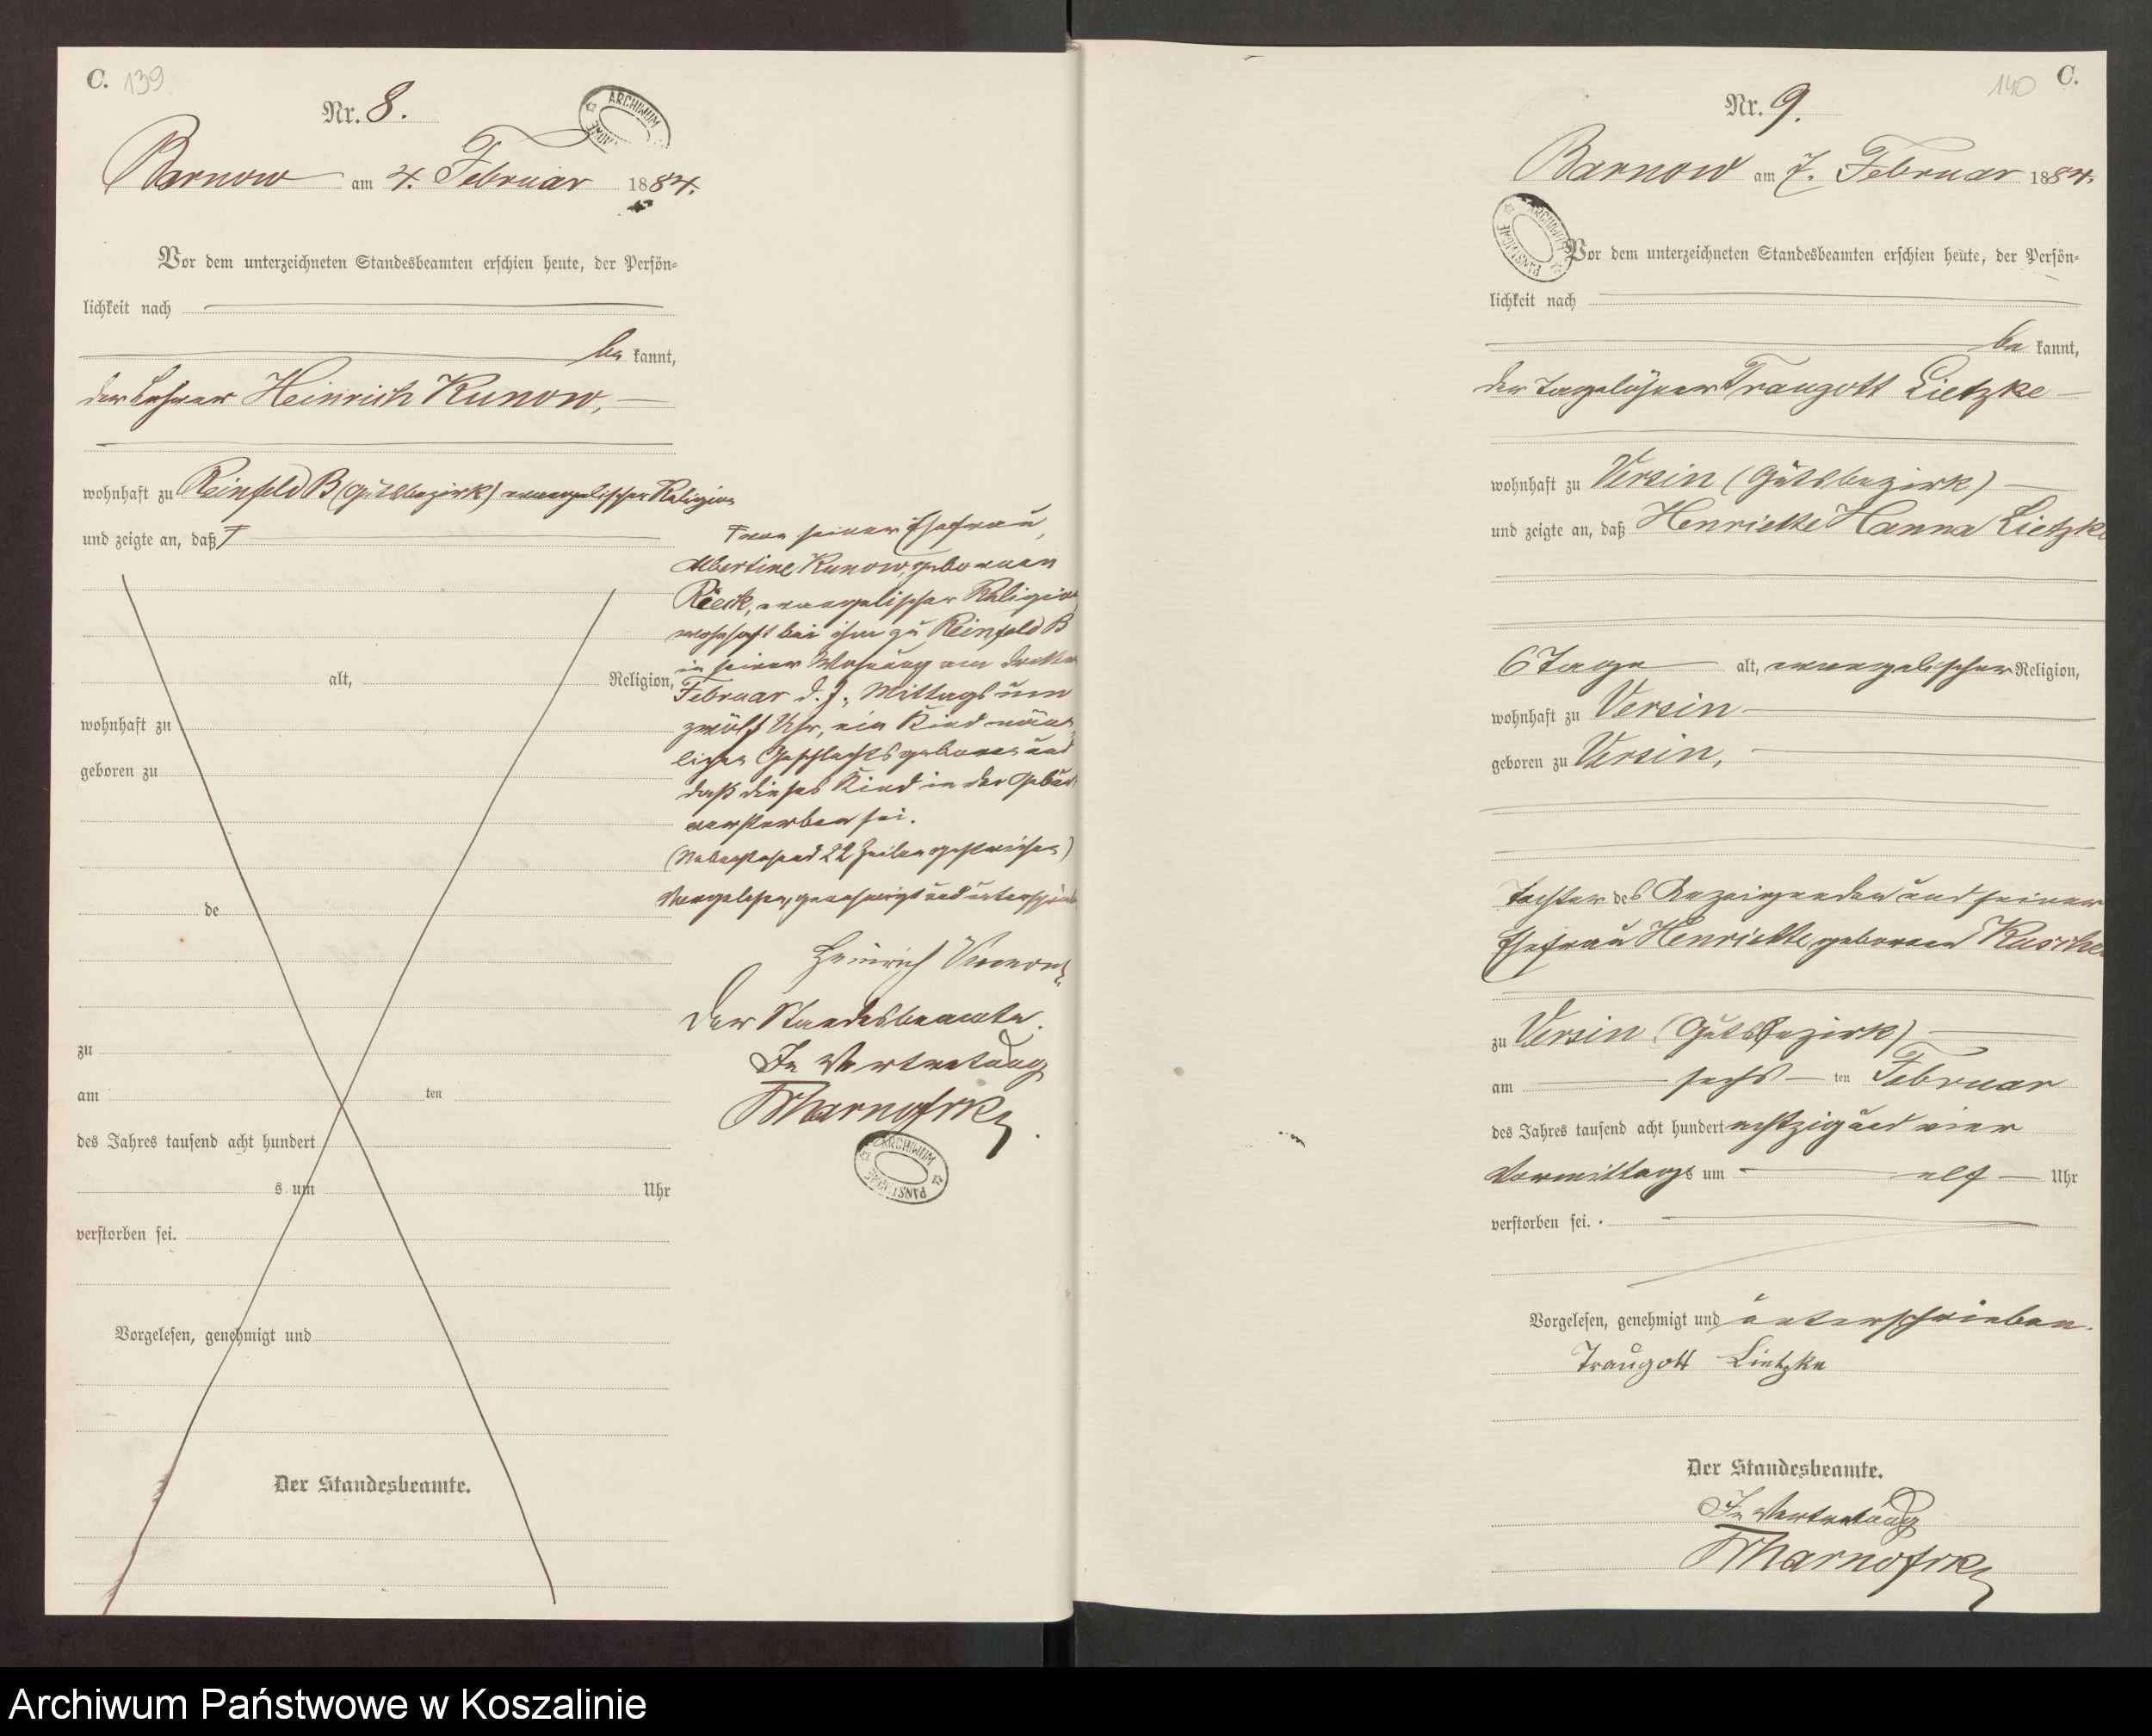 C. 139
Nr. 8.
ARCHIWUM
Barnow am 4. Februar 1884.
Vor dem unterzeichneten Standesbeamten erschien heute, der Persön-
lichkeit nach
be kannt,
der Lehrer Heinrich Kunow,
wohnhaft zu Reinfeld B (Gutsbezirk) evangelischer Religion
und zeigte an, daß F
alt, Religion,
wohnhaft zu
geboren zu
de
zu
am ten
des Jahres tausend acht hundert
s um Uhr
verstorben sei.
Vorgelesen, genehmigt und
Der Standesbeamte.
F von seiner Ehefrau,
Albertine Kunow, geborenen
Rieck, evangelischer Religion
wohnhaft bei ihm zu Reinfeld B
in seiner Wohnung am dritten
Februar d. J., Mittags um
zwölf Uhr, ein Kind männ-
lichen Geschlechts geboren und
daß dieses Kind in der Geburt
verstorben sei.
(Nebenstehend 22 Zeilen gestrichen)
Vorgelesen, genehmigt und unterschrieben
Heinrich Kunow
Der Standesbeamte.
In Vertretung
ARCHIWUM PAŃSTWOWE
140 C.
Nr. 9.
Barnow am 7. Februar 1884.
ARCHIWUM PAŃSTWOWE
Vor dem unterzeichneten Standesbeamten erschien heute, der Persön-
lichkeit nach
be kannt,
der Tagelöhner Traugott Lietzke
wohnhaft zu Versin (Gutsbezirk)
und zeigte an, daß Henriette Hanna Lietzke
6 Tage alt, evangelischer Religion,
wohnhaft zu Versin
geboren zu Versin,
Tochter des Anzeigenden und seiner
Ehefrau Henriette geborenen Kuschke
zu Versin (Gutsbezirk)
am sechs ten Februar
des Jahres tausend acht hundert achtzig und vier
Vormittags um elf Uhr
verstorben sei.
Vorgelesen, genehmigt und unterschrieben.
Traugott Lietzke
Der Standesbeamte.
In Vertretung
Archiwum Państwowe w Koszalinie